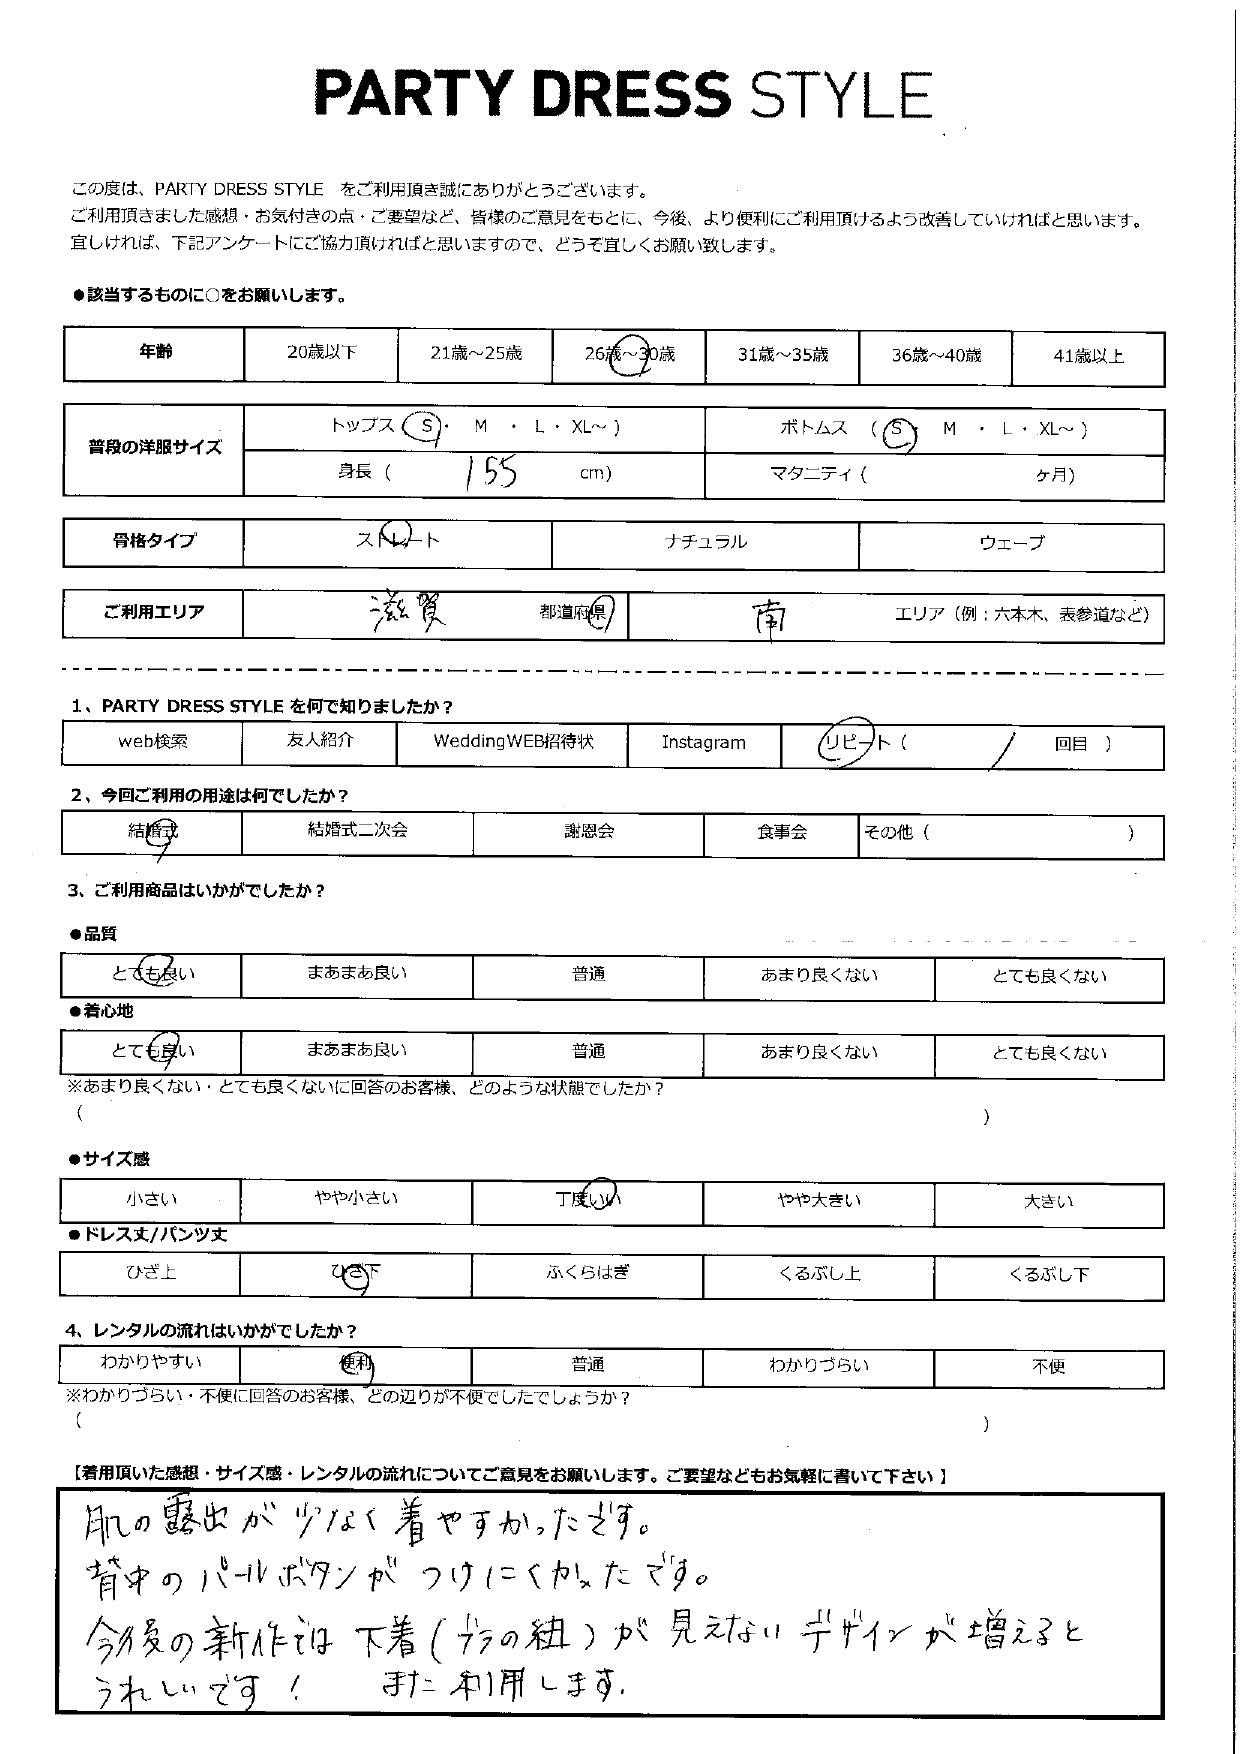 PARTY DRESS STYLE
この度は、PARTY DRESS STYLE をご利用頂き誠にありがとうございます。
ご利用頂きました感想・お気付きの点・ご要望など、皆様のご意見をもとに、今後、より便利にご利用頂けるよう改善していければと思います。
宜しければ、下記アンケートにご協力頂ければと思いますので、どうぞ宜しくお願い致します。
●該当するものに○をお願いします。
年齢 20歳以下 21歳～25歳 26歳～30歳 31歳～35歳 36歳～40歳 41歳以上
普段の洋服サイズ トップス ( S ・ M ・ L ・ XL～ ) ボトムス ( S ・ M ・ L ・ XL～ )
身長 ( 155 cm) マタニティ ( ヶ月)
骨格タイプ ストレート ナチュラル ウェーブ
ご利用エリア 滋賀 都道府県 南 エリア（例：六本木、表参道など）
1、PARTY DRESS STYLE を何で知りましたか？
web検索 友人紹介 WeddingWEB招待状 Instagram リピート ( / 回目 )
2、今回ご利用の用途は何でしたか？
結婚式 結婚式二次会 謝恩会 食事会 その他 ( )
3、ご利用商品はいかがでしたか？
●品質
とても良い まあまあ良い 普通 あまり良くない とても良くない
●着心地
とても良い まあまあ良い 普通 あまり良くない とても良くない
※あまり良くない・とても良くないに回答のお客様、どのような状態でしたか？
( )
●サイズ感
小さい やや小さい 丁度いい やや大きい 大きい
●ドレス丈/パンツ丈
ひざ上 ひざ下 ふくらはぎ くるぶし上 くるぶし下
4、レンタルの流れはいかがでしたか？
わかりやすい 便利 普通 わかりづらい 不便
※わかりづらい・不便に回答のお客様、どの辺りが不便でしたでしょうか？
( )
【着用頂いた感想・サイズ感・レンタルの流れについてご意見をお願いします。ご要望などもお気軽に書いて下さい 】
肌の露出が少なく着やすかったです。
背中のパールボタンがつけにくかったです。
今後の新作では下着(ブラの紐)が見えないデザインが増えると
うれしいです！ また利用します.